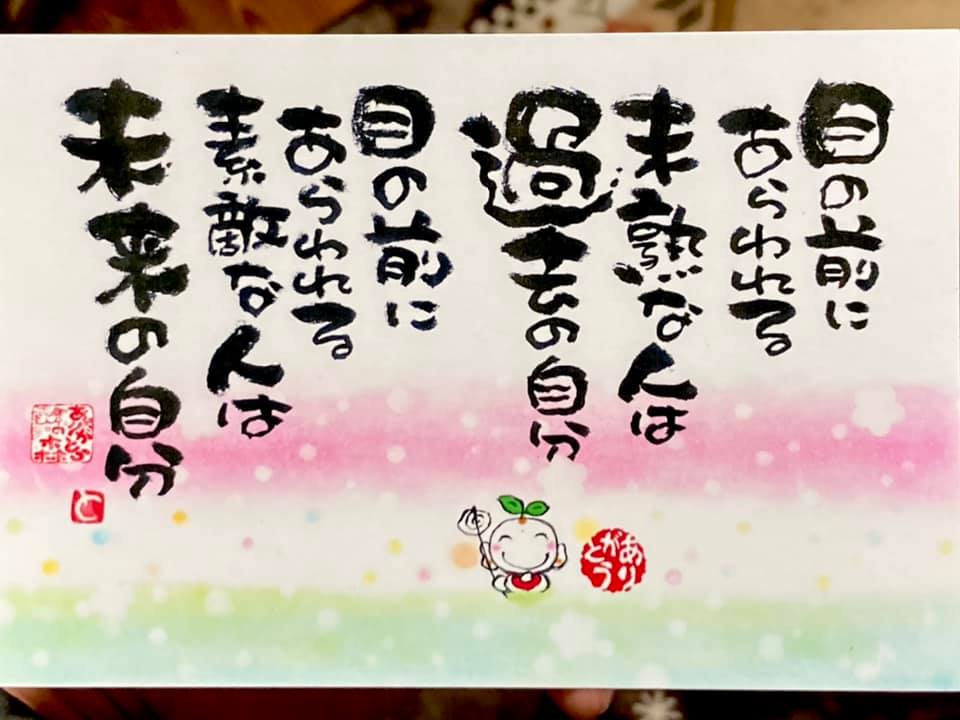 目の前に
あらわれる
未熟な人は
過去の自分
目の前に
あらわれる
素敵な人は
未来の自分
ありがとう
と